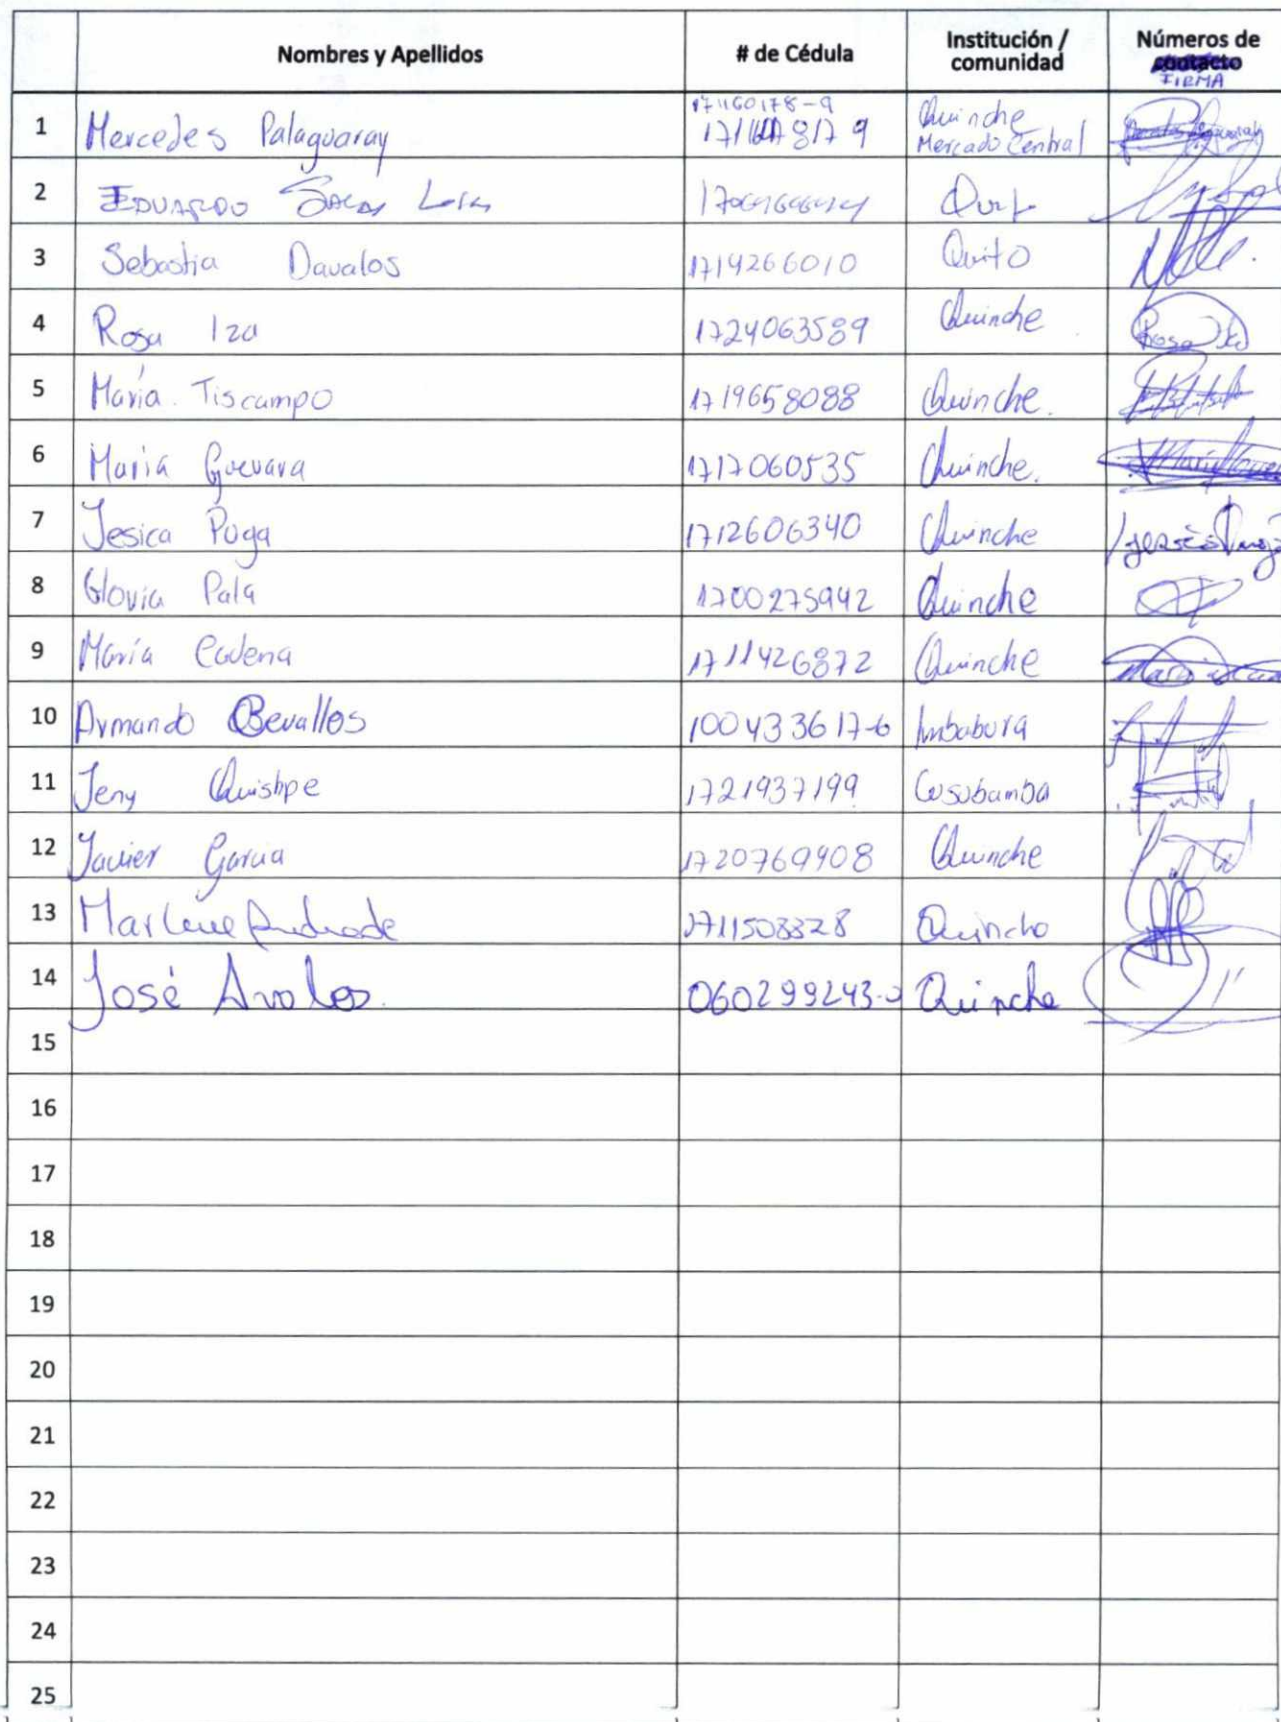 Nombres y Apellidos # de Cédula Institución / comunidad Números de contacto FIRMA
1 Mercedes Palaguaray 171160178-9 Quinche Mercado Central
2 EDUARDO
3 Sebastia Davalos 1714266010 Quito
4 Rosa Iza 1724063589 Quinche Rosa Iza
5 María Tiscampo 1719658088 Quinche.
6 Maria Guevara 1717060535 Quinche.
7 Jesica Puga 1712606340 Quinche
8 Gloria Pala 1700275942 Quinche
9 María Cadena 1711426872 Quinche
10 Armando Cevallos 100433617-6 Imbabura
11 Jeny Quishpe 1721937199 Cusubamba
12 Javier Garcia 1720769908 Quinche
13 Marlene Andrade 1711503328 Quinche
14 José Avalos. Quinche
15
16
17
18
19
20
21
22
23
24
25